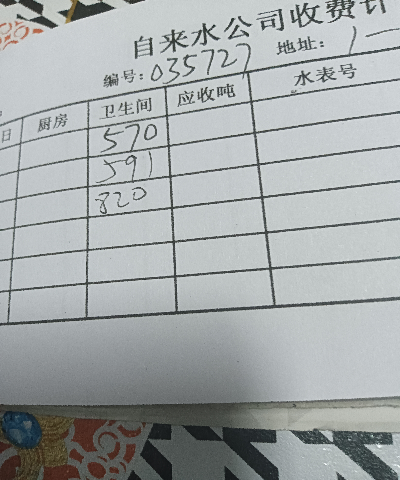 自来水公司收费计
编号:035727 地址: 1一
日 厨房 卫生间 应收吨 水表号
570
591
820